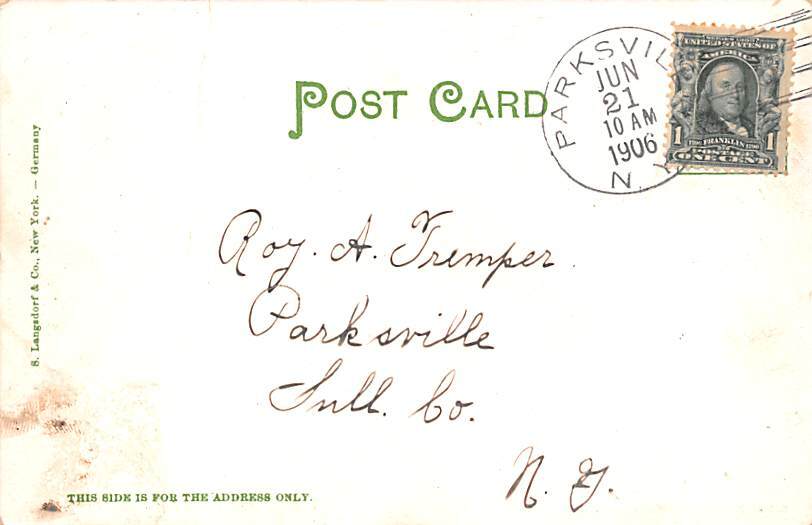 POST CARD
PARKSVIL
JUN
21
10 AM
1906
N. Y.
UNITED STATES OF
AMERICA
1 1
FRANKLIN
POSTAGE
ONE CENT
S. Langsdorf & Co., New York. — Germany
Roy. A. Tremper.
Parksville
Sull. Co.
N. Y.
THIS SIDE IS FOR THE ADDRESS ONLY.